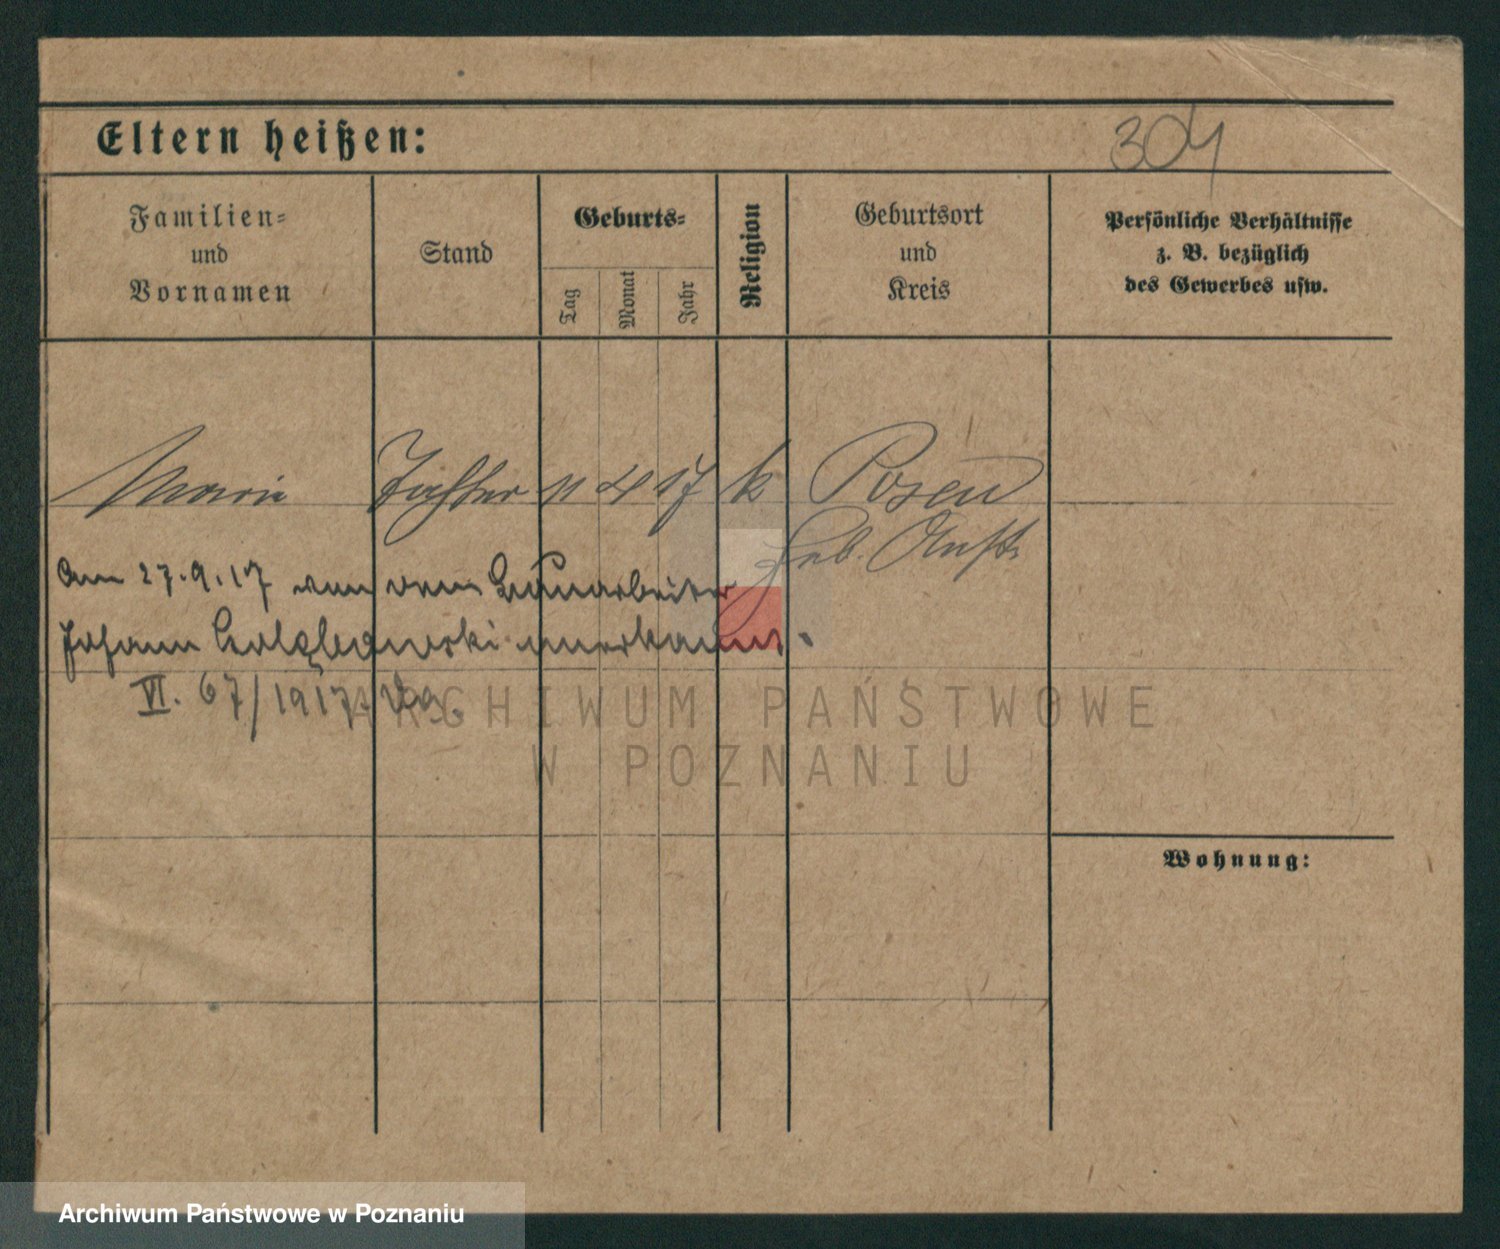 304
Eltern heißen:
Familien-
und
Vornamen
Stand
Geburts-
Tag
Monat
Jahr
Religion
Geburtsort
und
Kreis
Persönliche Verhältnisse
z. B. bezüglich
des Gewerbes usw.
Marie Tochter 11 4 17 k Posen
Geb. Anst.
Am 27.9.17 von dem
Johann anerkannt.
VI. 67/1917.
ARCHIWUM PAŃSTWOWE
W POZNANIU
Wohnung:
Archiwum Państwowe w Poznaniu